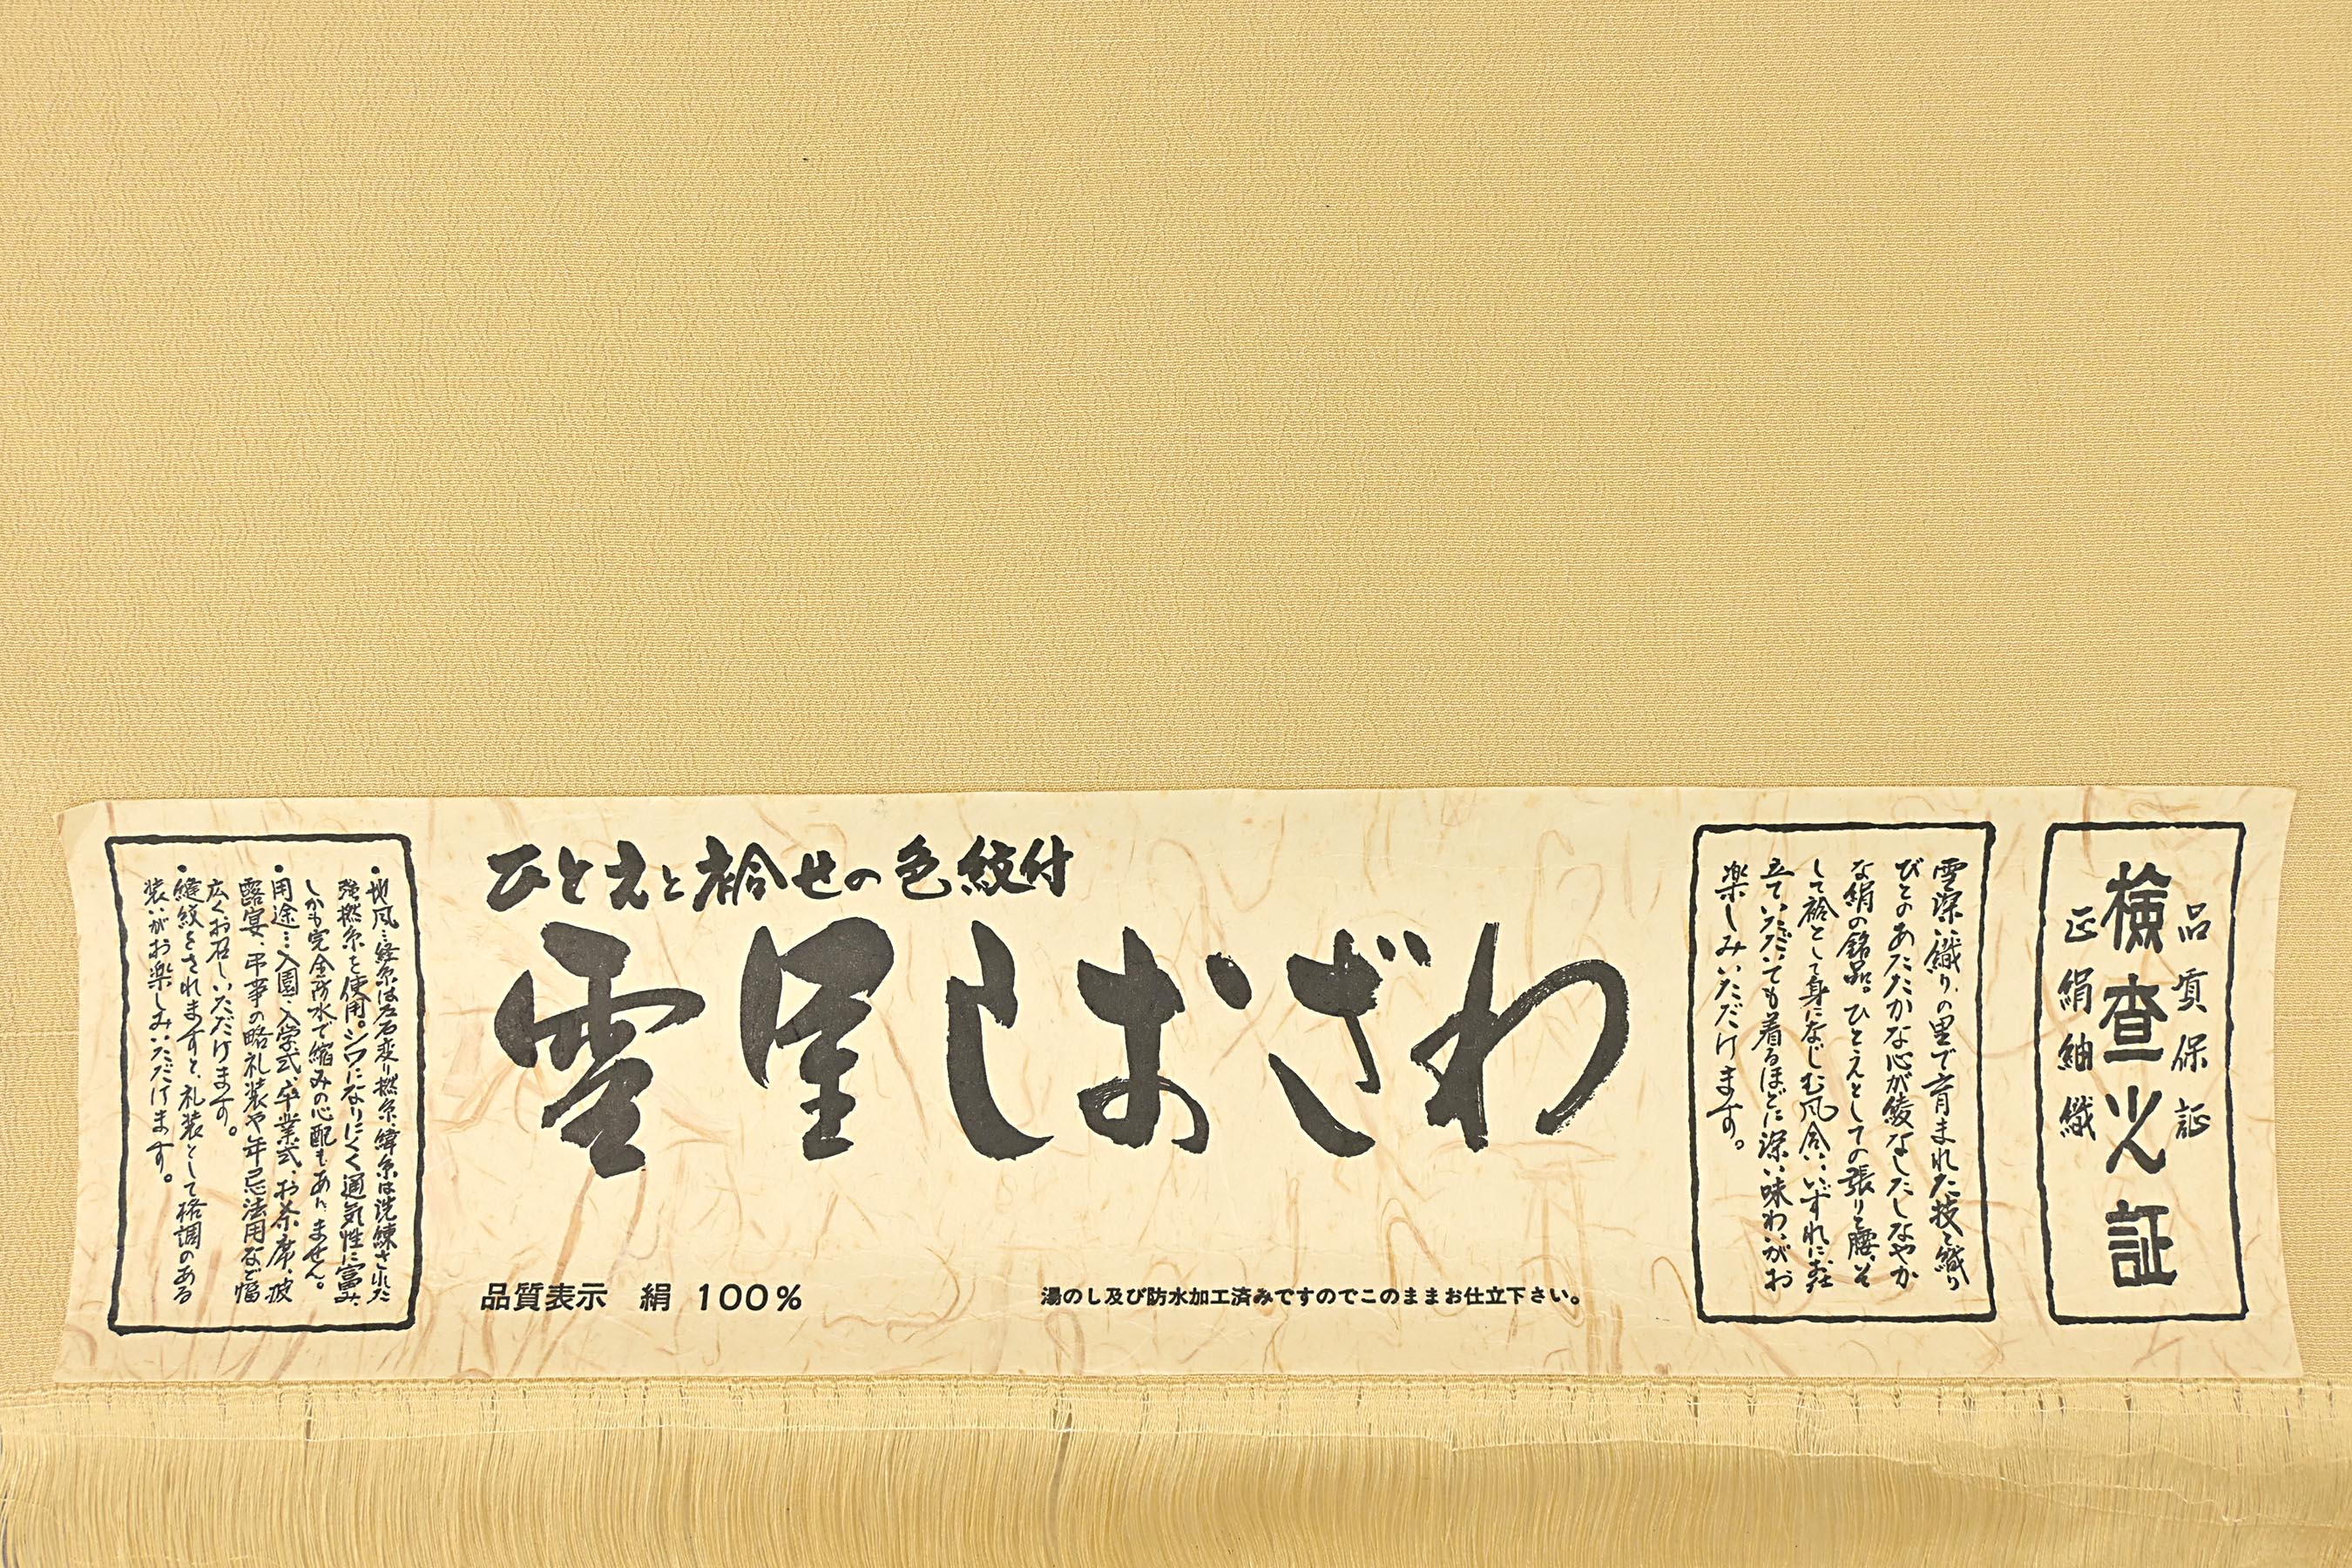 ひとえと袷せの色紋付
雪里しおざわ
品質表示 絹 100%
湯のし及び防水加工済みですのでこのままお仕立下さい。
品質保証
検査之証
正絹紬織
雪深い織りの里で育まれた技と織り
びとのあたたかな心が綾なしたしなやか
な絹の銘品。ひとえとしての張りと腰、そ
して袷として身になじむ風合い、いずれにお
立ていただいても着るほどに深い味わいがお
楽しみいただけます。
・地風…経糸は左右変り撚糸、緯糸は洗練された
強撚糸を使用。シワになりにくく通気性に富み、
しかも完全防水で縮みの心配もありません。
・用途…入園・入学式、卒業式、お茶席、披
露宴、弔事の略礼装や年忌法用など幅
広くお召しいただけます。
・縫紋をされますと、礼装として格調のある
装いがお楽しみいただけます。